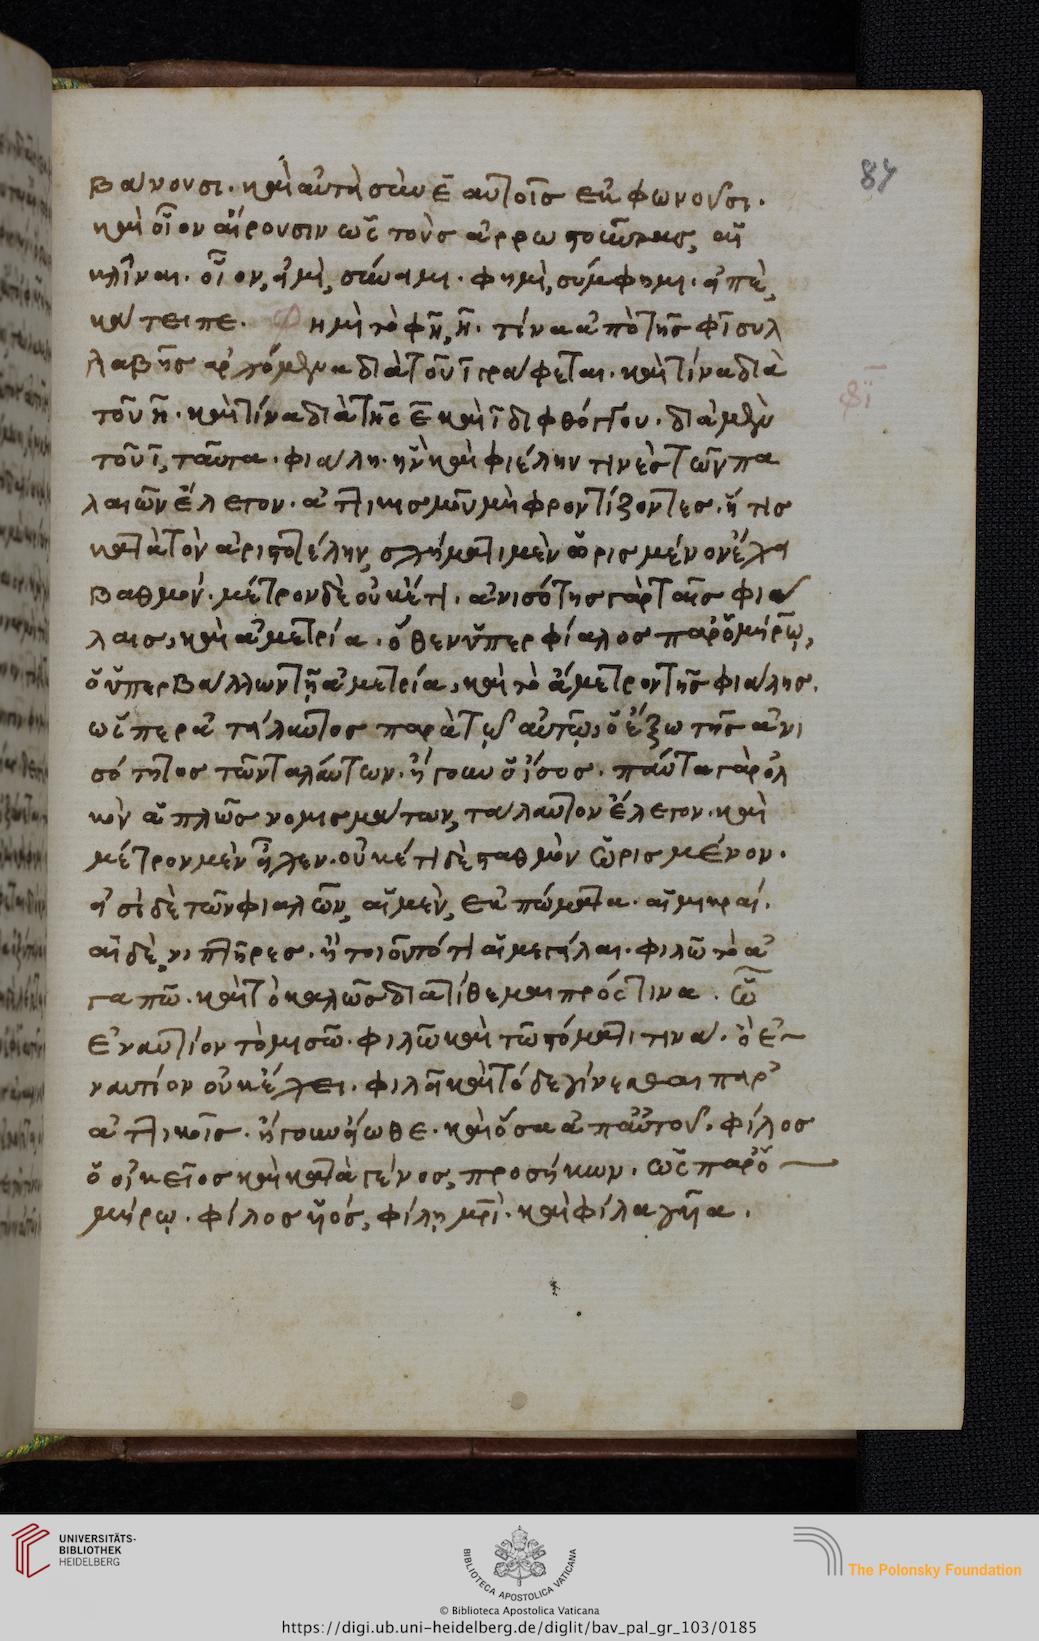 87
βαίνουσι. καὶ αὐτὴ σὺν ἑαυτοῖς ἐκφωνοῦσι.
καὶ οἷον αἴρουσιν ὡς τοὺς ἀρρωστοῦντας αἱ
κλῖναι. οἷον, εἰμὶ, σύνειμι. φημὶ, σύμφημι. εἰπὲ,
κάτειπε. Φημὶ τὸ φη, η. τίνα ἀπὸ τῆς φι συλ
λαβῆς ἀρχόμενα διὰ τοῦ ι γράφεται. καὶ τίνα διὰ
φϊ
τοῦ η. καὶ τίνα διὰ τῆς ε καὶ ι διφθόγγου. διὰ μὲν
τοῦ ι, ταῦτα. φιάλη. ἣν καὶ φιέλην τινὲς τῶν πα
λαιῶν ἔλεγον. ἀττικισμοῦ μὴ φροντίζοντες. ἥτις
κατὰ τὸν ἀριστοτέλην, σχήματι μὲν ὡρισμένον ἔχει
βαθμόν. μέτρον δὲ οὐκέτι. ἀνισότης γὰρ ταῖς φιά
λαις, καὶ ἀμετρία. ὅθεν ὑπερφίαλος παρ' ὁμήρῳ,
ὁ ὑπερβάλλων τῇ ἀμετρίᾳ, καὶ τὸ ἄμετρον τῆς φιάλης.
ὥσπερ ἀτάλαντος παρὰ τῷ αὐτῷ, ὁ ἔξω τῆς ἀνι
σότητος τῶν ταλάντων. ἤγουν ὁ ἴσος. πάντα γὰρ ὄγ
κον ἁπλῶς νομισμάτων, τάλαντον ἔλεγον. καὶ
μέτρον μὲν εἶχεν. οὐκέτι δὲ σταθμὸν ὡρισμένον.
εἰσὶ δὲ τῶν φιαλῶν, αἱ μὲν, ἐκπώματα. αἱ μικραί.
αἱ δὲ, νιπτῆρες. ἤτοι οὖν πότι αἱ μεγάλαι. φιλῶ τὸ ἀ
γαπῶ. καὶ τὸ καλῶς διατίθεμαι πρός τινα. ὧ
ἐναντίον τὸ μισῶ. φιλῶ καὶ τῶ στόματί τινα. ὃ ἐ
ναντίον οὐκ ἔχει. φιλεῖ καὶ τόδε γίνεσθαι παρ'
ἀττικοῖς. ἤγουν εἴωθε. καὶ ὅσα ἀπ' αὐτοῦ. φίλος
ὁ οἰκεῖος καὶ κατὰ γένος, προσήκων. ὡς παρ' ὁ
μήρῳ. φίλος υἱός, φίλη μρὶ. καὶ φίλα γυῖα.
UNIVERSITÄTS-
BIBLIOTHEK
HEIDELBERG
BIBLIOTECA APOSTOLICA VATICANA
The Polonsky Foundation
© Biblioteca Apostolica Vaticana
https://digi.ub.uni-heidelberg.de/diglit/bav_pal_gr_103/0185